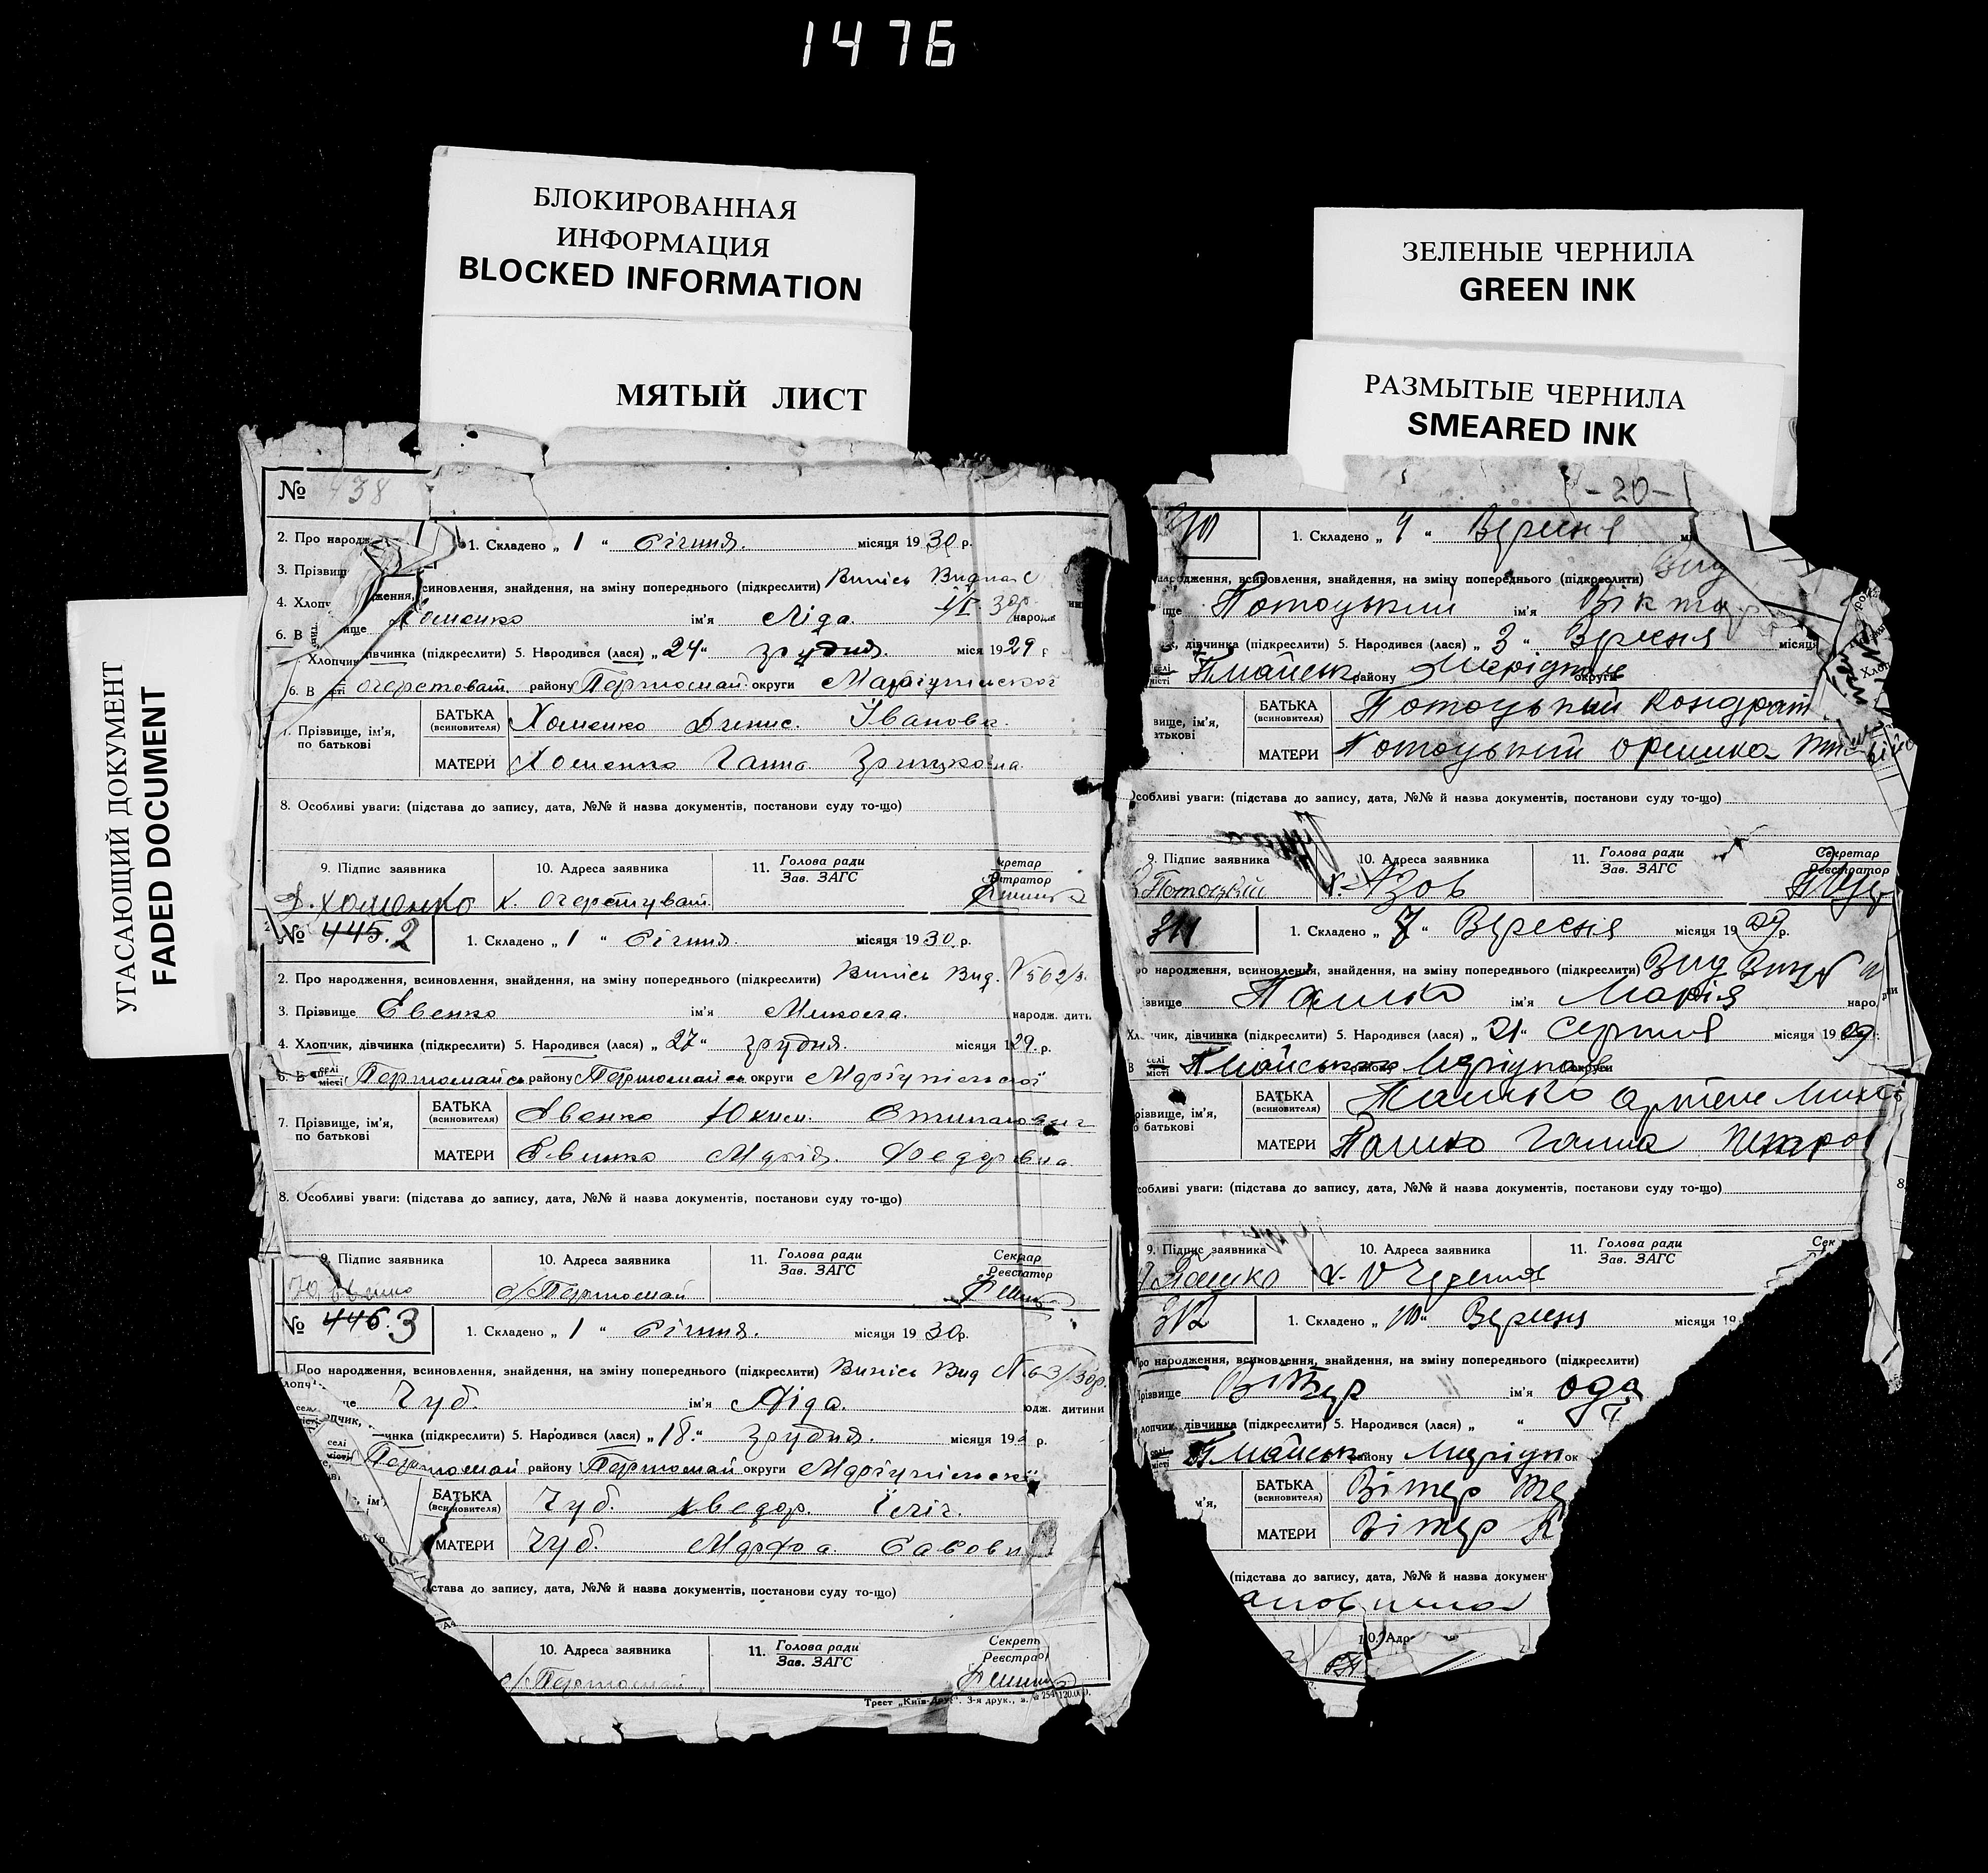 1476
БЛОКИРОВАННАЯ
ИНФОРМАЦИЯ
BLOCKED INFORMATION
МЯТЫЙ ЛИСТ
ЗЕЛЕНЫЕ ЧЕРНИЛА
GREEN INK
РАЗМЫТЫЕ ЧЕРНИЛА
SMEARED INK
УГАСАЮЩИЙ ДОКУМЕНТ
FADED DOCUMENT
№ 438
2. Про народж
1. Складено „ 1 “ Січння. місяця 1930 р.
3. Прізвищ
ження, всиновлення, знайдення, на зміну попереднього (підкреслити) Випись
4. Хлопч
ище Хоменко ім'я Ліда. народж
6. В
Хлопчик дівчинка (підкреслити) 5. Народився (лася) „ 24 “ грудня. міся 1929 р
6. В місті очеретоват. району Першомай округи Маріупільської
7. Прізвище, ім'я, по батькові
БАТЬКА (всиновителя) Хоменко Денис. Іванов
МАТЕРИ Хоменко Ганна
8. Особливі уваги: (підстава до запису, дата, №№ й назва документів, постанови суду то-що)
9. Підпис заявника 10. Адреса заявника 11. Голова ради Зав. ЗАГС кретар тратор
Д. Хоменко х. Очеретуват
№ 445. 2
1. Складено „ 1 “ Січння. місяця 1930 р.
2. Про народження, всиновлення, знайдення, на зміну попереднього (підкреслити) Випись Вид. №562/3.
3. Прізвище Євенко ім'я Микола. народж. дити
4. Хлопчик, дівчинка (підкреслити) 5. Народився (лася) „ 27 “ грудня. місяця 1929. р.
6. В селі місті Першомайсь району Першомайсь округи Маріупільської
7. Прізвище, ім'я, по батькові
БАТЬКА (всиновителя) Євенко Юхим.
МАТЕРИ Євенко Марія. Федорівна
8. Особливі уваги: (підстава до запису, дата, №№ й назва документів, постанови суду то-що)
9. Підпис заявника 10. Адреса заявника 11. Голова ради Зав. ЗАГС Секр ар Реєст атор
с/Першомай
№ 446. 3
1. Складено „ 1 “ Січння. місяця 1930р.
Про народження, всиновлення, знайдення, на зміну попереднього (підкреслити) Випись Вид
Чуб. ім'я Ліда. одж. дитини
чинка (підкреслити) 5. Народився (лася) „ 18. “ грудня. місяця 19 р.
селі місті Першомай району Першомай округи Маріупільської
БАТЬКА (всиновителя) Чуб. Хведор.
МАТЕРИ Чуб. Марфа Савовн
става до запису, дата, №№ й назва документів, постанови суду то-що)
10. Адреса заявника 11. Голова ради Зав. ЗАГС Секрет Реєстра
с/Першомай
Трест „Київ-Друк“. 3-я друк., з. № 254
-20-
310
1. Складено „ 4 “ Вересня
народження, всиновлення, знайдення, на зміну попереднього (підкреслити) Вид
ище Потоцький ім'я Віктор
дівчинка (підкреслити) 5. Народився (лася) „ 3 “ Вересня місяця
селі місті Пмайськ району Маріуп округи
вище, ім'я, атькові
БАТЬКА (всиновителя) Потоцький Кондрат
МАТЕРИ Потоцький
собливі уваги: (підстава до запису, дата, №№ й назва документів, постанови суду то-що)
9. Підпис заявника 10. Адреса заявника 11. Голова ради Зав. ЗАГС Секретар Реєстратор
Потоцький х. Азов
311
1. Складено „ 7 “ Вересня місяця 1929р.
ро народження, всиновлення, знайдення, на зміну попереднього (підкреслити) Вид
ізвище Пашко ім'я Марія наро
Хл чик, дівчинка (підкреслити) 5. Народився (лася) „ 21 “ Серпня місяця 1929 р.
В селі місті Пмайськ району Маріупол округи
різвище, ім'я, о батькові
БАТЬКА (всиновителя) Пашко Артем
МАТЕРИ Пашко Ганна Петров
собливі уваги: (підстава до запису, дата, №№ й назва документів, постанови суду то-що)
8
9. Підпис заявника 10. Адреса заявника 11. Голова ради Зав. ЗАГС Сек
Пашко
312
1. Складено „ 10 “ Вересня місяця 19
Про народження, всиновлення, знайдення, на зміну попереднього (підкреслити)
різвище Вітер ім'я
лопчик, дівчинка (підкреслити) 5. Народився (лася) „ “
селі місті Пмайськ району Маріуп ок
м'я,
БАТЬКА (всиновителя) Вітер
МАТЕРИ Вітер
(підстава до запису, дата, №№ й назва докумен
10. Адр